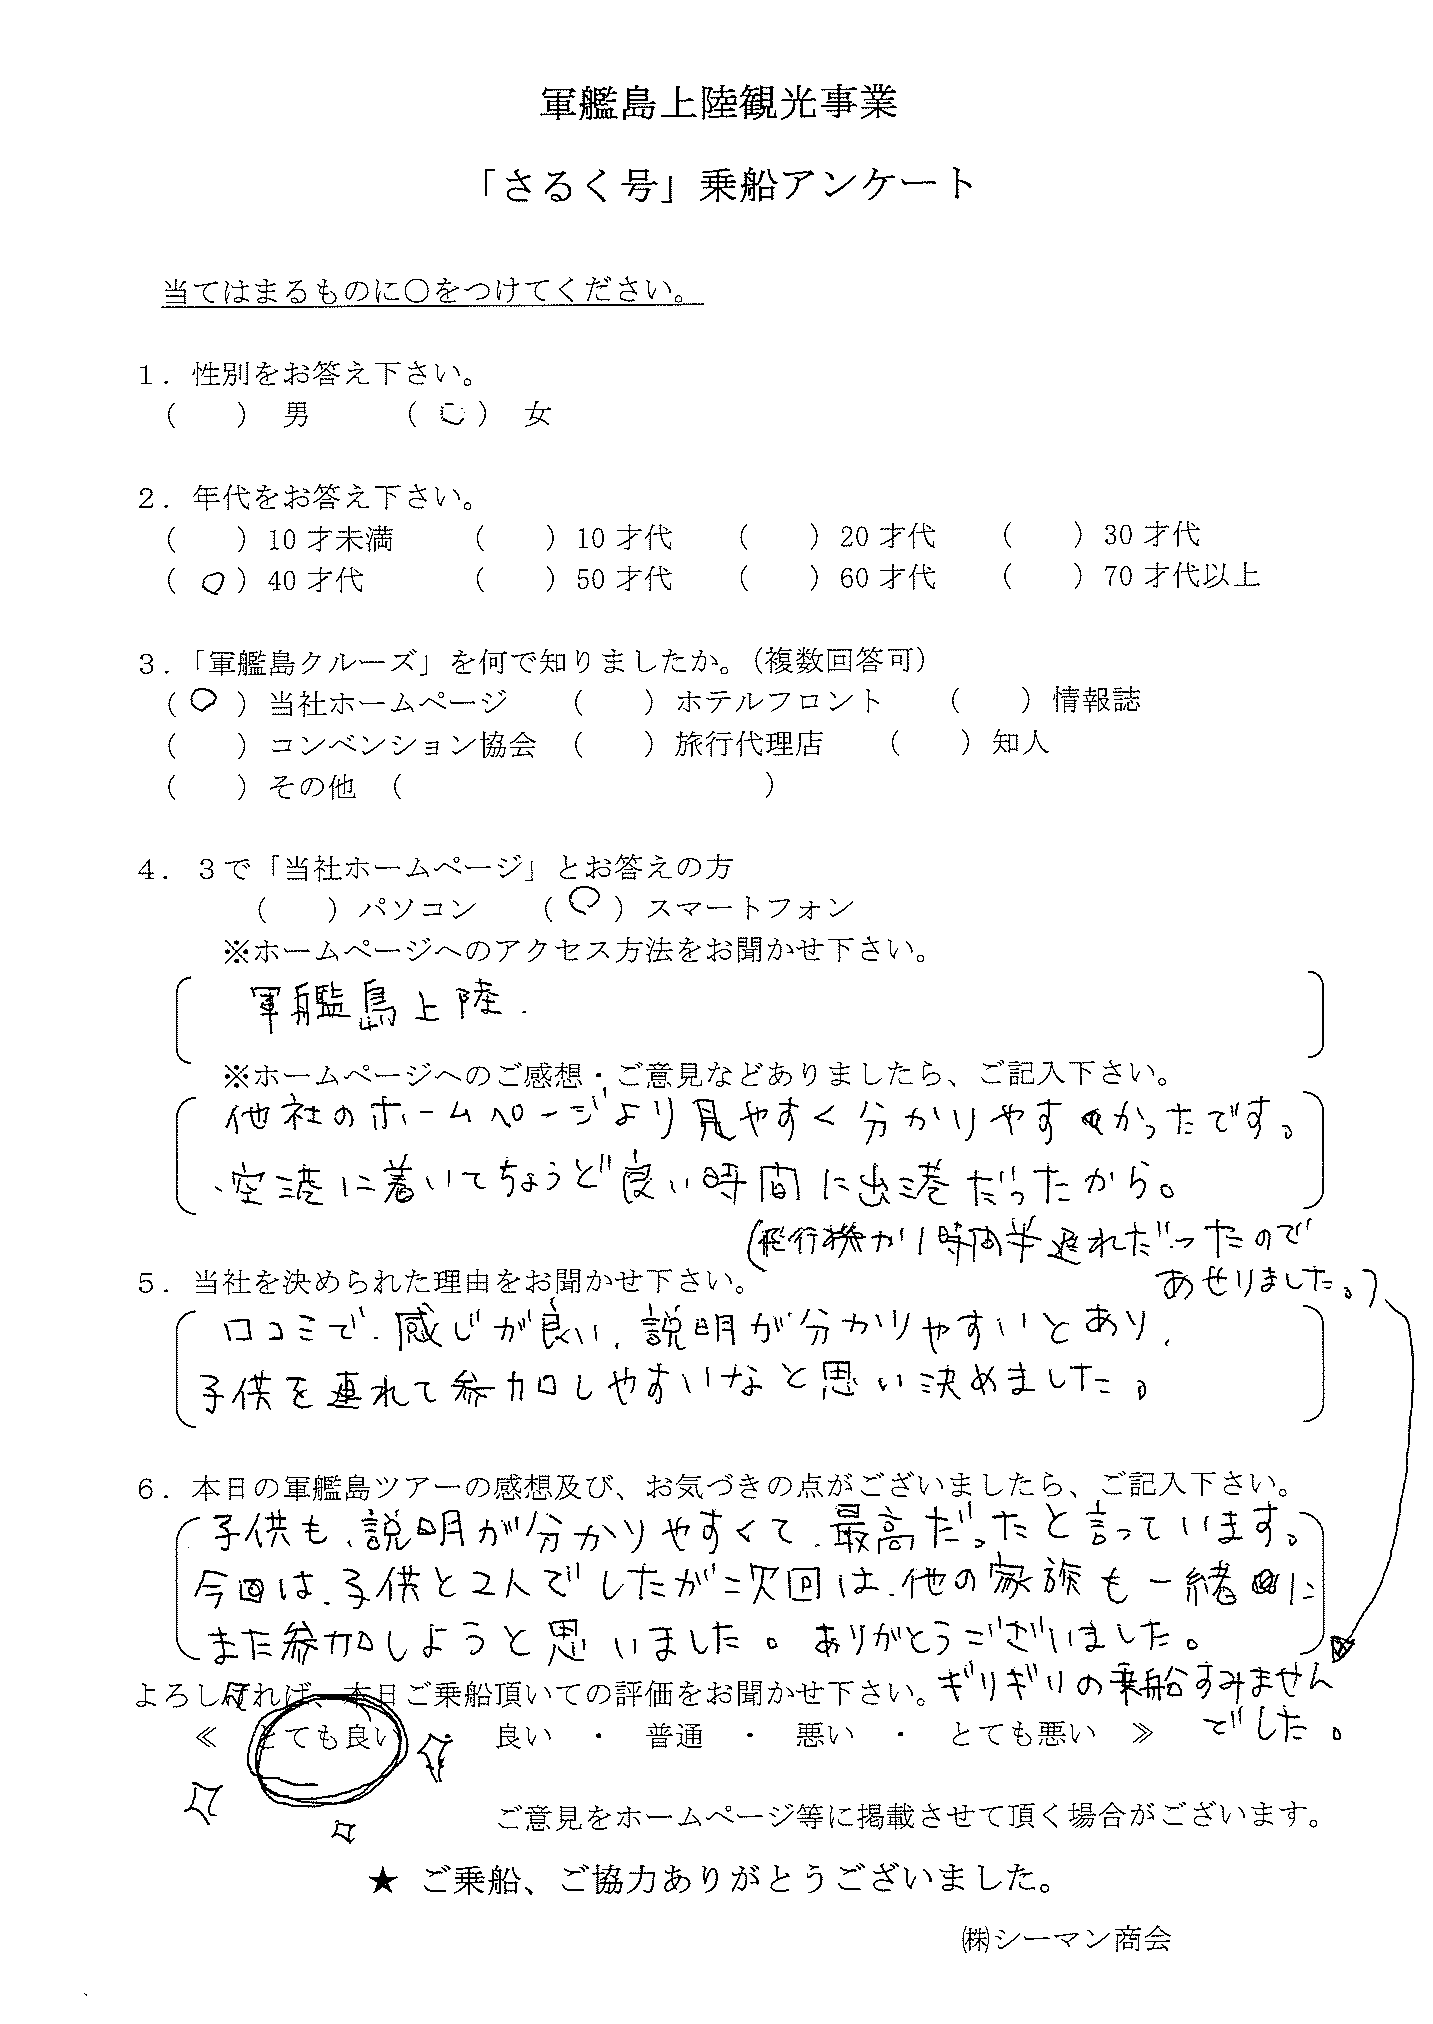 軍艦島上陸観光事業
「さるく号」乗船アンケート
当てはまるものに〇をつけてください。
1．性別をお答え下さい。
（　　）男　　（○）女
2．年代をお答え下さい。
（　　）10才未満　　（　　）10才代　　（　　）20才代　　（　　）30才代
（○）40才代　　（　　）50才代　　（　　）60才代　　（　　）70才代以上
3．「軍艦島クルーズ」を何で知りましたか。（複数回答可）
（○）当社ホームページ　　（　　）ホテルフロント　　（　　）情報誌
（　　）コンベンション協会　（　　）旅行代理店　　（　　）知人
（　　）その他　（　　　　　　　　　　）
4．3で「当社ホームページ」とお答えの方
（　　）パソコン　　（○）スマートフォン
※ホームページへのアクセス方法をお聞かせ下さい。
軍艦島上陸.
※ホームページへのご感想・ご意見などありましたら、ご記入下さい。
他社のホームページより見やすく分かりやすかったです。
、空港に着いてちょうど良い時間に出港だったから。
（飛行機が1時間半遅れだったので
あせりました。）
5．当社を決められた理由をお聞かせ下さい。
口コミで、感じが良い、説明が分かりやすいとあり、
子供を連れて参加しやすいなと思い決めました。
6．本日の軍艦島ツアーの感想及び、お気づきの点がございましたら、ご記入下さい。
子供も、説明が分かりやすくて、最高だったと言っています。
今回は、子供と2人でしたが、次回は、他の家族も一緒に
また参加しようと思いました。ありがとうございました。
よろしければ、本日ご乗船頂いての評価をお聞かせ下さい。
ギリギリの乗船すみません
でした。
≪　とても良い　良い　・　普通　・　悪い　・　とても悪い　≫
ご意見をホームページ等に掲載させて頂く場合がございます。
★ ご乗船、ご協力ありがとうございました。
㈱シーマン商会